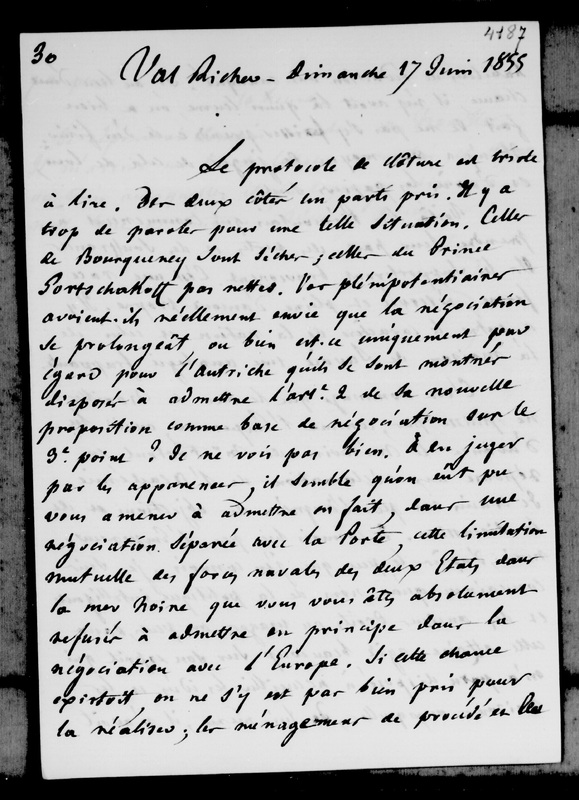 30
4187
Val Richer - Dimanche 17 Juin 1855
Le protocole de clôture est triste
à lire. Des deux côtés un parti pris. Il y a
trop de paroles pour une telle situation. Celles
de Bourqueney sont sèches ; celles du Prince
Gortschakoff pas nettes. Vos plénipotentiaires
avoient-ils réellement envie que la négociation
se prolongeât ou bien est-ce uniquement par
égard pour l'Autriche qu'ils se sont montrés
disposés à admettre l'art. 2 de sa nouvelle
proposition comme base de négociation sur le
3e point ? Je ne vois pas bien. A en juger
par les apparences, il semble qu'on eût pu
vous amener à admettre en fait, dans une
négociation séparée avec la Porte, cette limitation
mutuelle des forces navales des deux Etats dans
la mer Noire que vous vous êtes absolument
refusés à admettre en principe dans la
négociation avec l'Europe. Si cette chance
existoit, on ne s'y est pas bien pris pour
la réaliser ; les ménagemens de procédé et